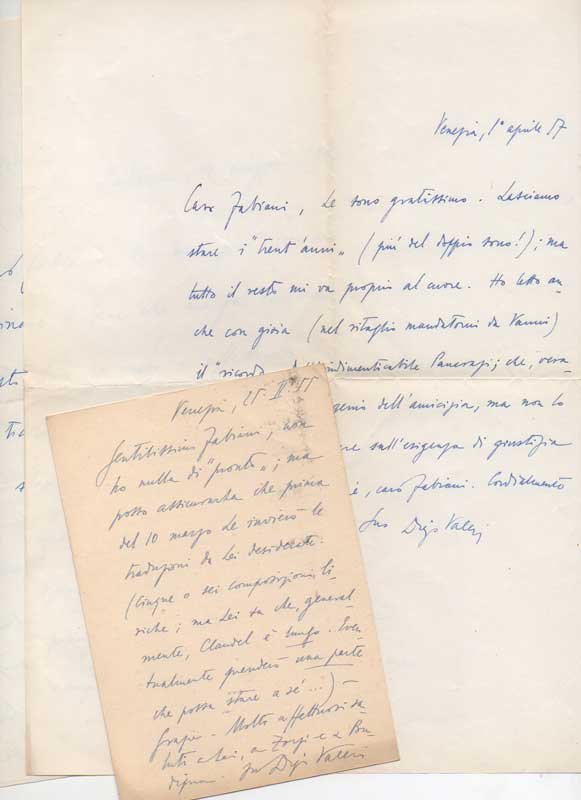 Venezia, 1° aprile 57
Caro Fabiani, Le sono gratissimo. Lasciamo
stare i "trent'anni" (più del doppio sono!); ma
tutto il resto mi va proprio al cuore. Ho letto an-
che con gioia (nel ritaglio mandatomi da Vanni)
il "ricordo dell'indimenticabile Pancrazi; che, vera-
genio dell'amicizia, ma non lo
sull'esigenza di giustizia
caro Fabiani. Cordialmente
Suo Diego Valeri
Venezia, 25. II. 55
Gentilissimo Fabiani, non
ho nulla di "pronto"; ma
posso assicurarLa che prima
del 10 marzo Le invierò le
traduzioni da Lei desiderate.
(Cinque o sei composizioni li-
riche; ma Lei sa che, general-
mente, Claudel è lungo. Even-
tualmente prenderò una parte
che possa stare a sé...) –
Grazie. Molti affettuosi sa-
luti a Lei, a Zorzi e a
Suo Diego Valeri